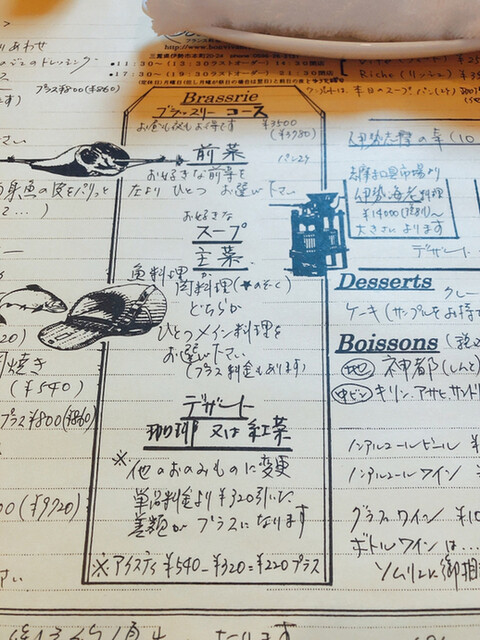 りあわせ
ジュのドレッシング
プラス¥800(¥860)
http://www.
三重県伊勢市本町20-24
●11:30〜(13:30ラストオーダー) 14:30閉店
●17:30〜(19:30ラストオーダー) 21:30閉店
Riche (リッシュ)
Brasserie
ブラッスリー コース
お昼も夜もお得です ¥3500
(¥3780)
前菜 パンスープ
お好きな前菜を
左より ひとつ お選び下さい
お好きな
スープ
主菜
魚料理か
肉料理(★のぞく)
どちらか
ひとつメイン料理を
お選び下さい
(プラス料金もあります)
デザート
珈琲 又は 紅茶
※他のおのみものに変更
単品料金より ¥320引いた
差額が プラスになります
※アイスティ ¥540-¥320=¥220プラス
魚の皮をパリっと
2…)
焼き
(¥540)
プラス¥800(¥860)
(¥9720)
伊勢志摩の幸
志摩和具市場より
伊勢海老料理
¥14000(税別)〜
大きさによります
デザート
Desserts
ケーキ(サンプルをお持
Boissons
地 神都(しんと)
中ビン キリン.アサヒ.サントリ
ノンアルコールビール
ノンアルコール ワイン
グラスワイン
ボトルワインは…
ソムリエに御相